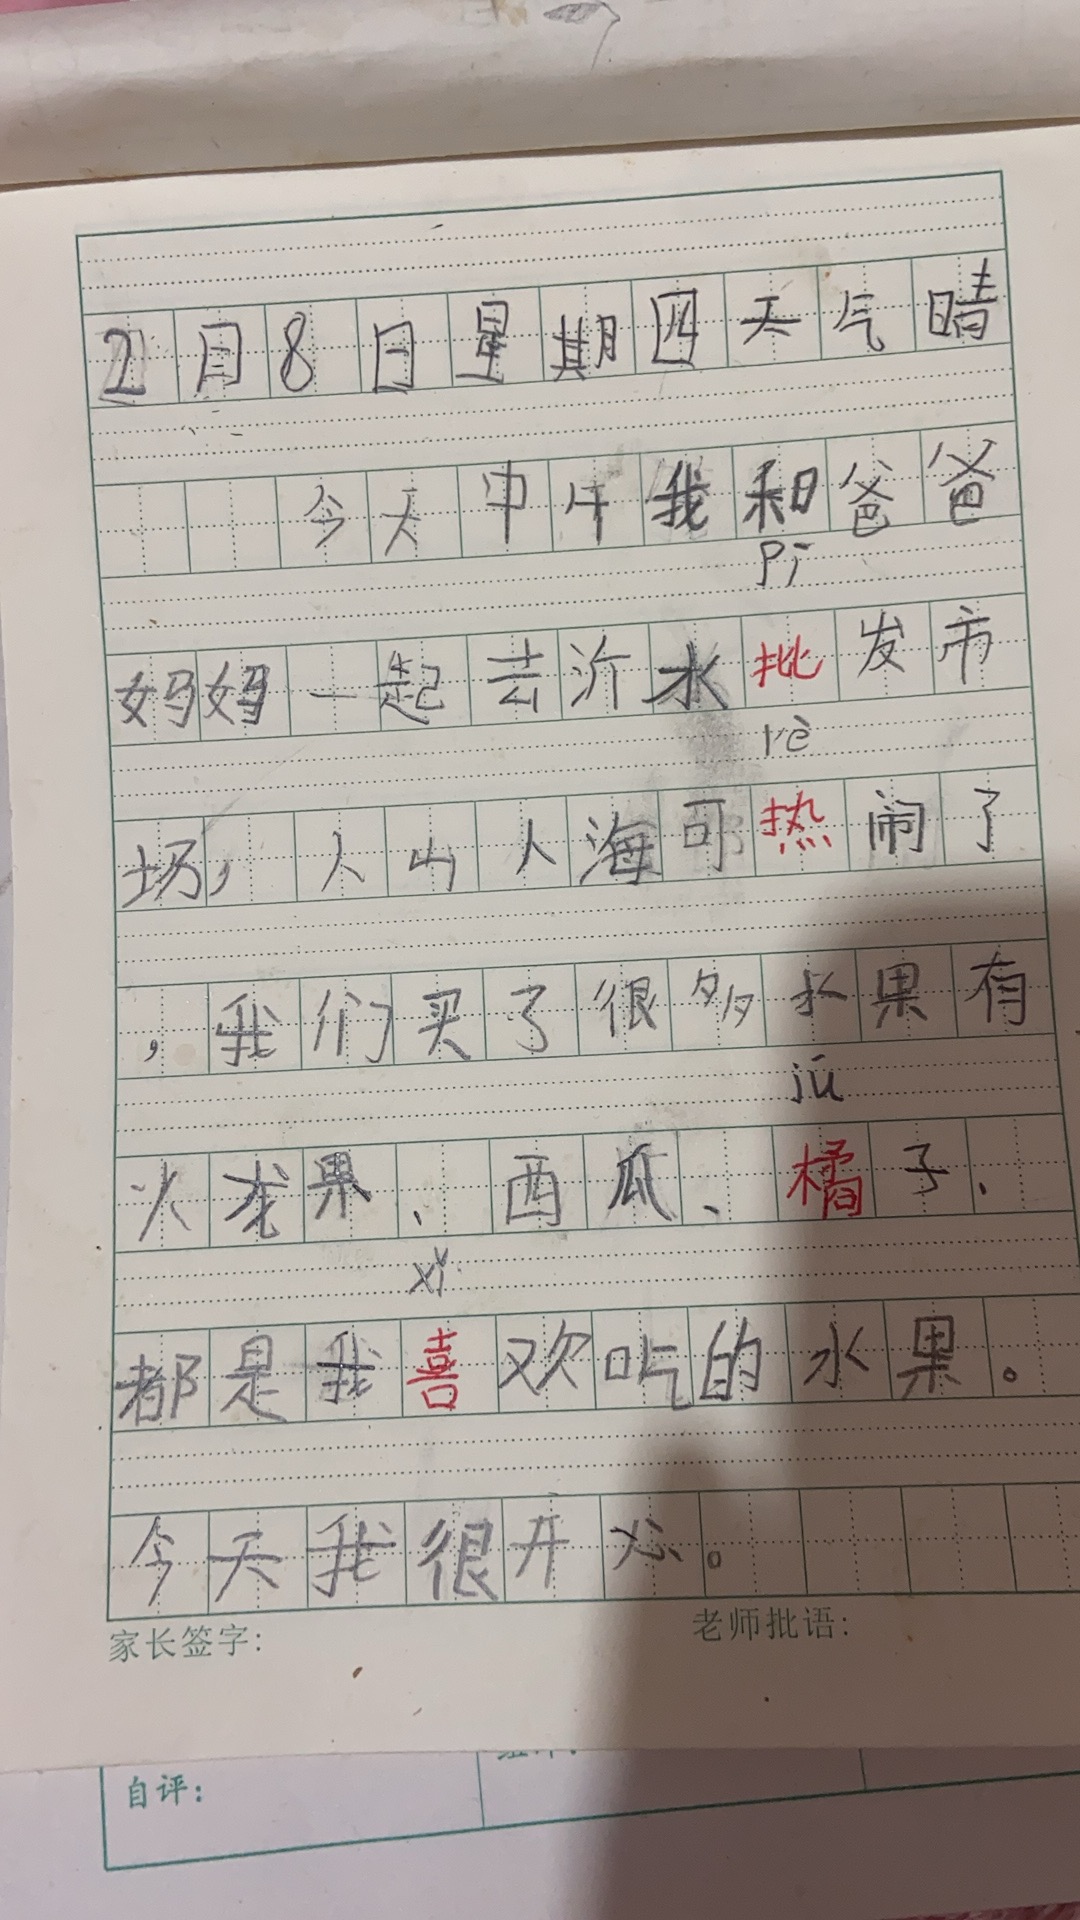 2月8日星期四天气晴
今天中午我和爸爸
pī
妈妈一起去沂水批发市
rè
场，人山人海可热闹了
，我们买了很多水果有
jú
火龙果、西瓜、橘子、
xǐ
都是我喜欢吃的水果。
今天我很开心。
家长签字： 老师批语：
自评：